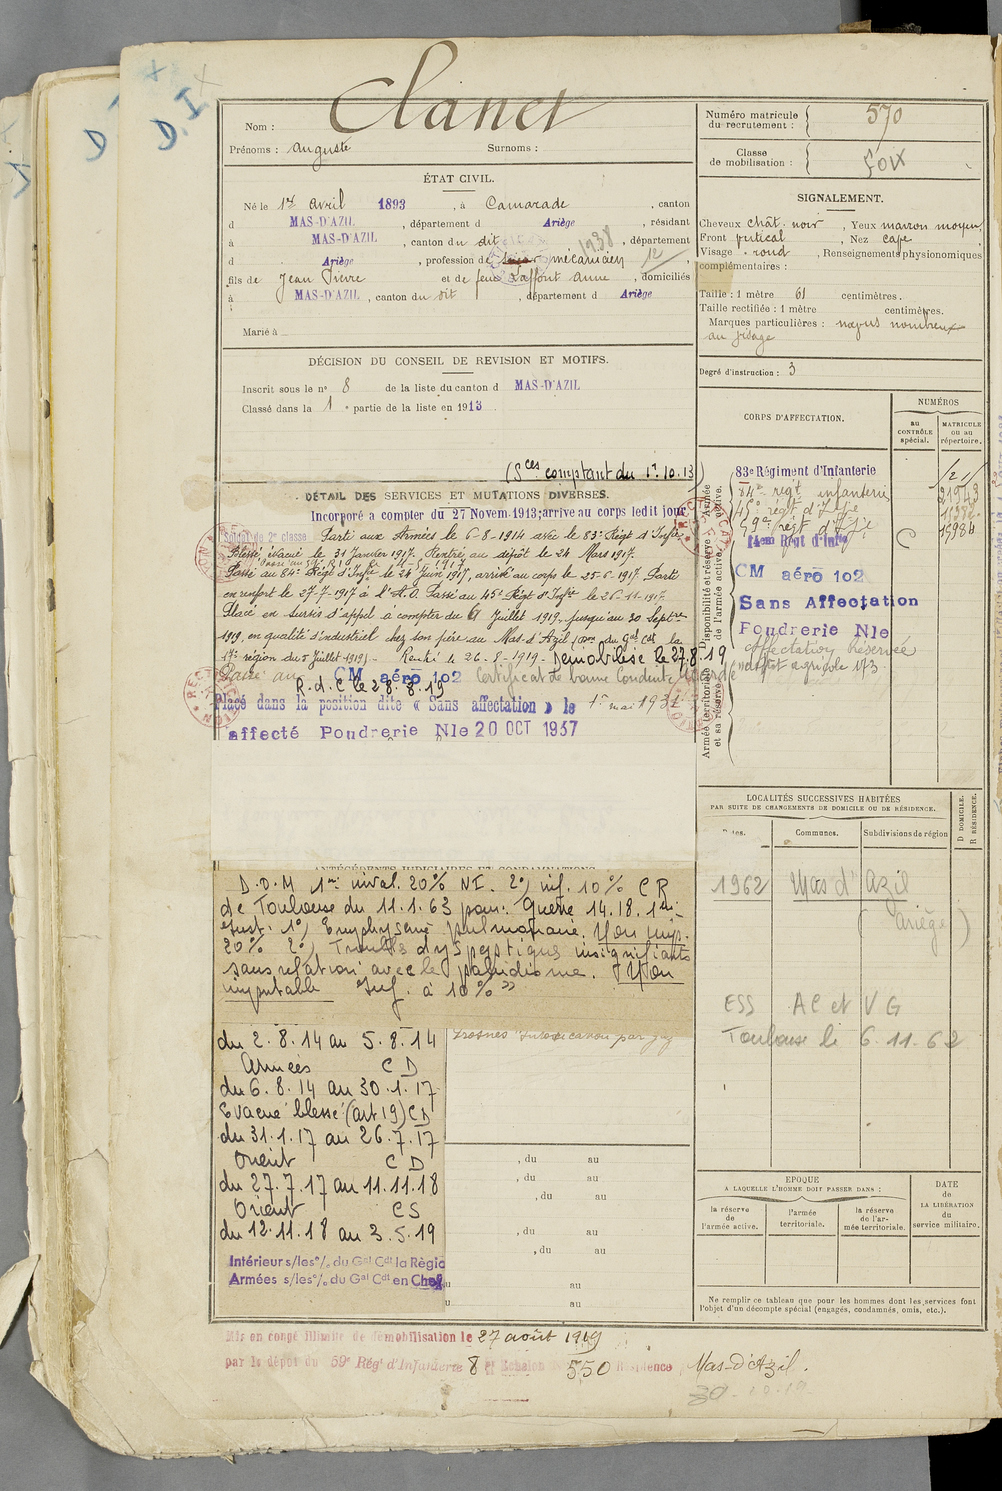 D.I
D.I
Clanet
Nom :
Prénoms : Auguste Surnoms :
ÉTAT CIVIL.
Né le 1er avril 1893, à Camarade, canton
d MAS-D'AZIL, département d Ariège, résidant
à MAS-D'AZIL, canton du dit, département
d Ariège, profession de mécanicien
fils de Jean Pierre et de feue Laffont Anne, domiciliés
à MAS-D'AZIL, canton du dit, département d Ariège
Marié à
DÉCISION DU CONSEIL DE REVISION ET MOTIFS.
Inscrit sous le n° 8 de la liste du canton d MAS-D'AZIL
Classé dans la 1e partie de la liste en 1913.
(Sces comptant du 1r.10.13)
DÉTAIL DES SERVICES ET MUTATIONS DIVERSES.
Incorporé a compter du 27 Novem 1913; arrive au corps ledit jour
Soldat de 2e classe Parti aux Armées le 6-8-1914 avec le 83e Régt d'Infie
Blessé, évacué le 31 Janvier 1917. Rentré au dépôt le 24 Mars 1917.
Passé au 84e Régt d'Infie le 24 Juin 1917, arrivé au corps le 25-6-1917 Parti
en renfort le 27-7-1917 à l'A.O. Passé au 45e Régt d'Infie le 26-11-1917.
Placé en Sursis d'appel à compter du Juillet 1919, jusqu'au 30 Septbre
1919, en qualité d'industriel chez son père au Mas-d'Azil (on du Gal Cdt la
17e région du 5 Juillet 1919) - Rentré le 26-8-1919 - Démobilisé le 27.8.19
Passé au CM aéro 102 Certificat de bonne conduite Accordé
R.d.C le 28.8.19
Placé dans la position dite « Sans affectation » le 1er mai 193
affecté Poudrerie Nle 20 OCT 1937
ANTÉCÉDENTS JUDICIAIRES ET CONDAMNATIONS
D.O.M 1re inval. 20% NI. 2°) inf. 10% CR
de Toulouse du 11.1.63 pour: Guerre 14.18. 1re
1°) Emphysème pulmonaire. Non imp.
20% 2°) Troubles dyspeptiques insignifiants
sans relation avec le paludisme. Non
imputable Inf. à 10% »
du 2.8.14 au 5.8.14
Armées CD
du 6.8.14 au 30.1.17
Evacué blessé (art 19) CD
du 31.1.17 au 26.7.17
Orient CD
du 27.7.17 au 11.11.18
Orient CS
du 12.11.18 au 3.5.19
Intérieur s/les o/. du Gal Cdt la Règio
Armées s/les o/. du Gal Cdt en Chef
Intoxication par gaz
, du au
, du au
, du au
, du au
, du au
u au
u au
Mis en congé illimité de démobilisation le 27 août 1919
par le dépôt du 59e Régt d'Infanterie 8e Echelon 550 Résidence Mas-d'Azil.
Numéro matricule du recrutement : 570
Classe de mobilisation : Foix
SIGNALEMENT.
Cheveux chât. noir, Yeux marron moyen,
Front vertical, Nez cave,
Visage rond, Renseignements physionomiques
complémentaires :
Taille : 1 mètre 61 centimètres.
Taille rectifiée : 1 mètre centimètres.
Marques particulières : nævus nombreux
au visage
Degré d'instruction : 3
CORPS D'AFFECTATION.
NUMÉROS
au CONTRÔLE spécial.
MATRICULE ou au répertoire.
Disponibilité et réserve de l'armée active.
Armée active.
Armée territoriale et sa réserve.
83e Régiment d'Infanterie
84e régt infanterie 21943
45e régt d'Infie 11382
59e régt d'Infie 15984
14em Régt d'Infie C
CM aéro 102
Sans Affectation
Poudrerie Nle
affectation Réservée
LOCALITÉS SUCCESSIVES HABITÉES
PAR SUITE DE CHANGEMENTS DE DOMICILE OU DE RÉSIDENCE.
Dates. Communes. Subdivisions de région
D DOMICILE.
R RÉSIDENCE.
1962 Mas d'Azil
(Ariège)
ESS AC et VG
Toulouse le 6.11.62
EPOQUE
A LAQUELLE L'HOMME DOIT PASSER DANS :
la réserve de l'armée active.
l'armée territoriale.
la réserve de l'armée territoriale.
DATE de LA LIBÉRATION du service militaire.
Ne remplir ce tableau que pour les hommes dont les services font
l'objet d'un décompte spécial (engagés, condamnés, omis, etc.).